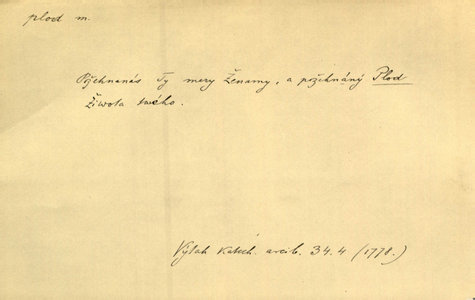 plod m.
Požehnanás Ty mezy Ženamy, a požehnáný Plod
Života twého.
Výtah katech. arcib. 34.4 (1778.)